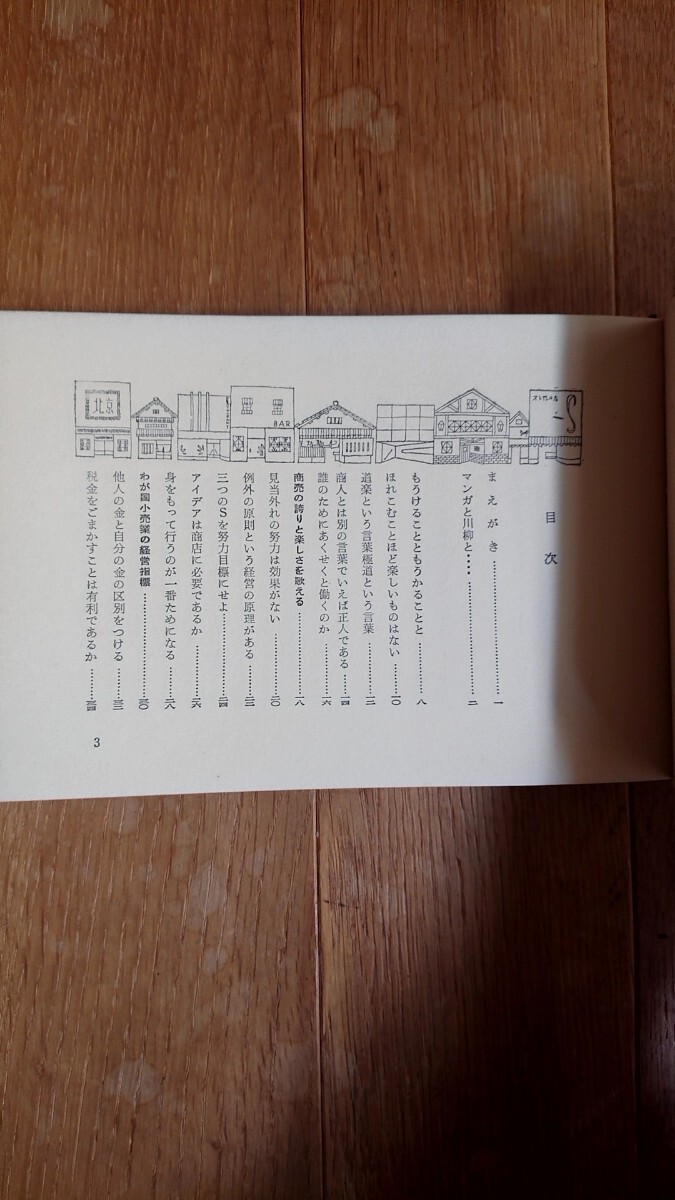 北京
BAR
S
目次
まえがき……………一
マンガと川柳と‥‥……………二
もうけることともうかることと……………八
ほれこむことほど楽しいものはない……………一〇
道楽という言葉極道という言葉……………一二
商人とは別の言葉でいえば正人である……………一四
誰のためにあくせくと働くのか……………一六
商売の誇りと楽しさを歌える……………一八
見当外れの努力は効果がない……………二〇
例外の原則という経営の原理がある……………二二
三つのSを努力目標にせよ……………二四
アイデアは商店に必要であるか……………二六
身をもって行うのが一番ためになる……………二八
わが国小売業の経営指標……………三〇
他人の金と自分の金の区別をつける……………三二
税金をごまかすことは有利であるか……………三四
3